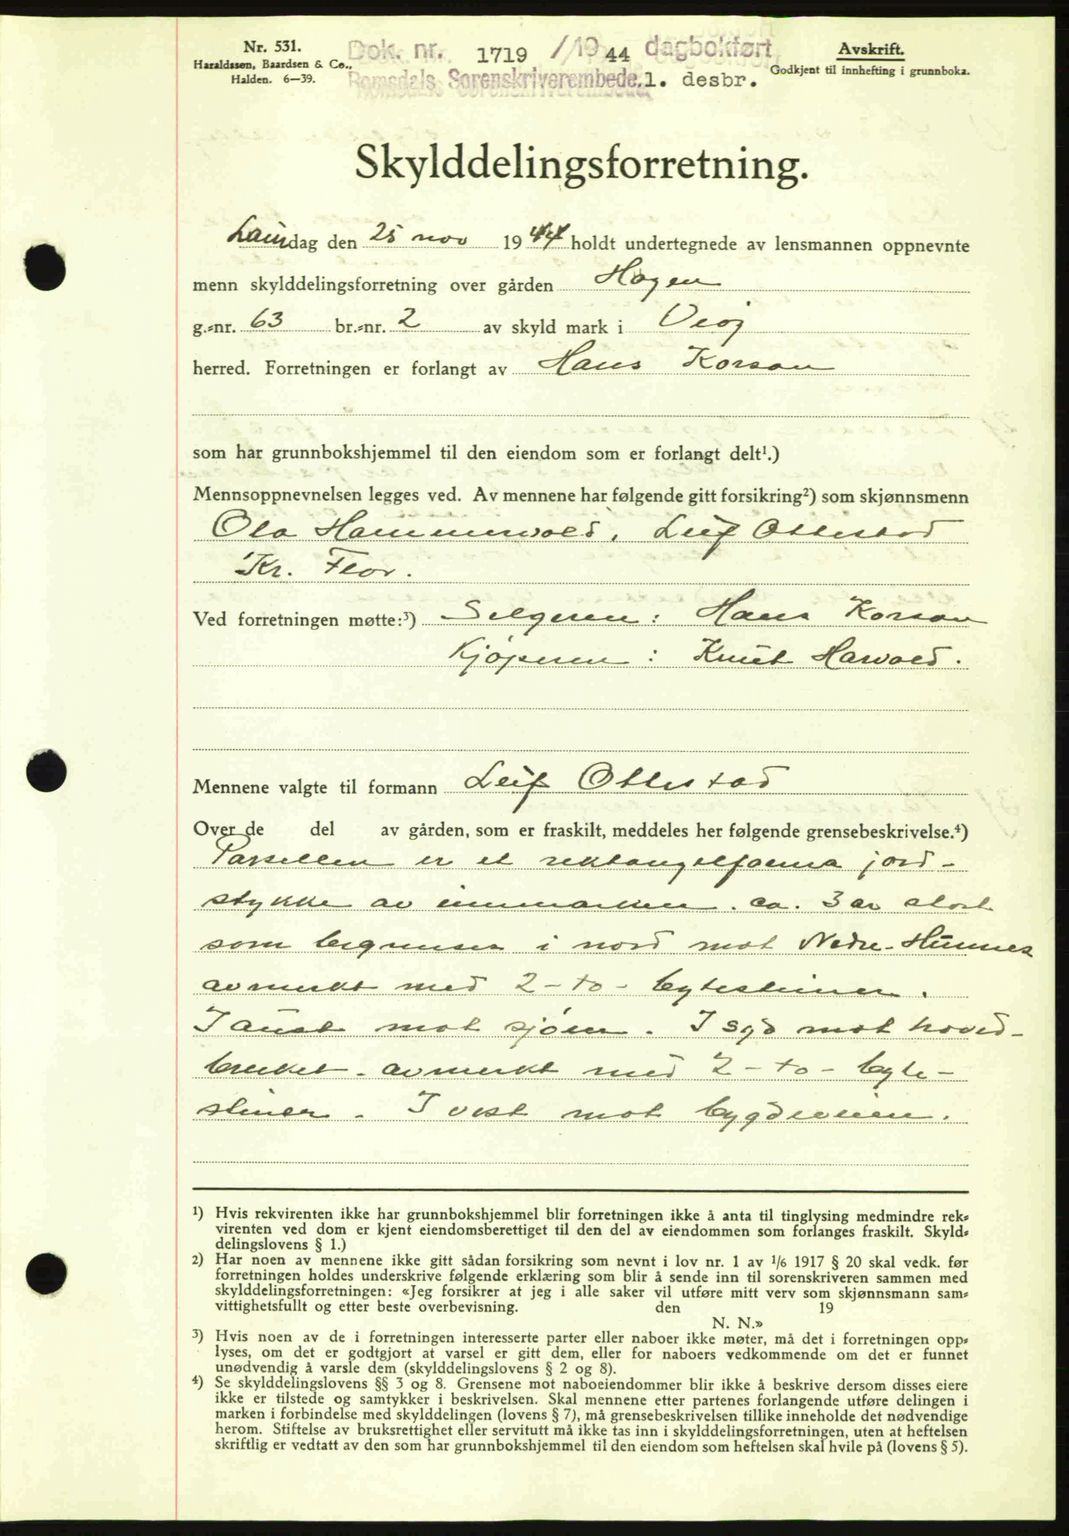 Nr. 531.
Haraldssen, Baardsen & Co.,
Halden. 6—39.
Dok. nr. 1719 /19 44 dagbokført
Romsdals Sorenskriverembede. 1. desbr.
Avskrift.
Godkjent til innhefting i grunnboka.
Skylddelingsforretning.
Laurdag den 25 nov 1944 holdt undertegnede av lensmannen oppnevnte
menn skylddelingsforretning over gården Hagen
g.-nr. 63 br.-nr. 2 av skyld mark i Veøj
herred. Forretningen er forlangt av Hans Korsan
som har grunnbokshjemmel til den eiendom som er forlangt delt¹.)
Mennsoppnevnelsen legges ved. Av mennene har følgende gitt forsikring²) som skjønnsmenn
Ola Hammervold, Leif Ottestad
Kr. Flor.
Ved forretningen møtte:³) Selgeren: Hans Korsan
Kjøperen: Knut Harvold.
Mennene valgte til formann Leif Ottestad
Over de del av gården, som er fraskilt, meddeles her følgende grensebeskrivelse.⁴)
Parsellen er et rektangelforma jord-
stykke av innmarken. ca. 3 ar stort
som begrenses i nord mot Nedre-Hunnes
avmerkt med 2-to- bytesteiner.
I aust mot sjøen. I syd mot hoved-
bruket. avmerkt med 2-to- byte-
steiner. I vest mot bygdeveien.
¹) Hvis rekvirenten ikke har grunnbokshjemmel blir forretningen ikke å anta til tinglysing medmindre rek-
virenten ved dom er kjent eiendomsberettiget til den del av eiendommen som forlanges fraskilt. Skyld-
delingslovens § 1.)
²) Har noen av mennene ikke gitt sådan forsikring som nevnt i lov nr. 1 av ¹/6 1917 § 20 skal vedk. før
forretningen holdes underskrive følgende erklæring som blir å sende inn til sorenskriveren sammen med
skylddelingsforretningen: «Jeg forsikrer at jeg i alle saker vil utføre mitt verv som skjønnsmann sam-
vittighetsfullt og etter beste overbevisning. den 19
N. N.»
³) Hvis noen av de i forretningen interesserte parter eller naboer ikke møter, må det i forretningen opp-
lyses, om det er godtgjort at varsel er gitt dem, eller for naboers vedkommende om det er funnet
unødvendig å varsle dem (skylddelingslovens § 2 og 8).
⁴) Se skylddelingslovens §§ 3 og 8. Grensene mot naboeiendommer blir ikke å beskrive dersom disses eiere
ikke er tilstede og samtykker i beskrivelsen. Skal mennene etter partenes forlangende utføre delingen i
marken i forbindelse med skylddelingen (lovens § 7), må grensebeskrivelsen tillike inneholde det nødvendige
herom. Stiftelse av bruksrettighet eller servitutt må ikke tas inn i skylddelingsforretningen, uten at heftelsen
skriftlig er vedtatt av den som har grunnbokshjemmel til den eiendom som heftelsen skal hvile på (lovens § 5).